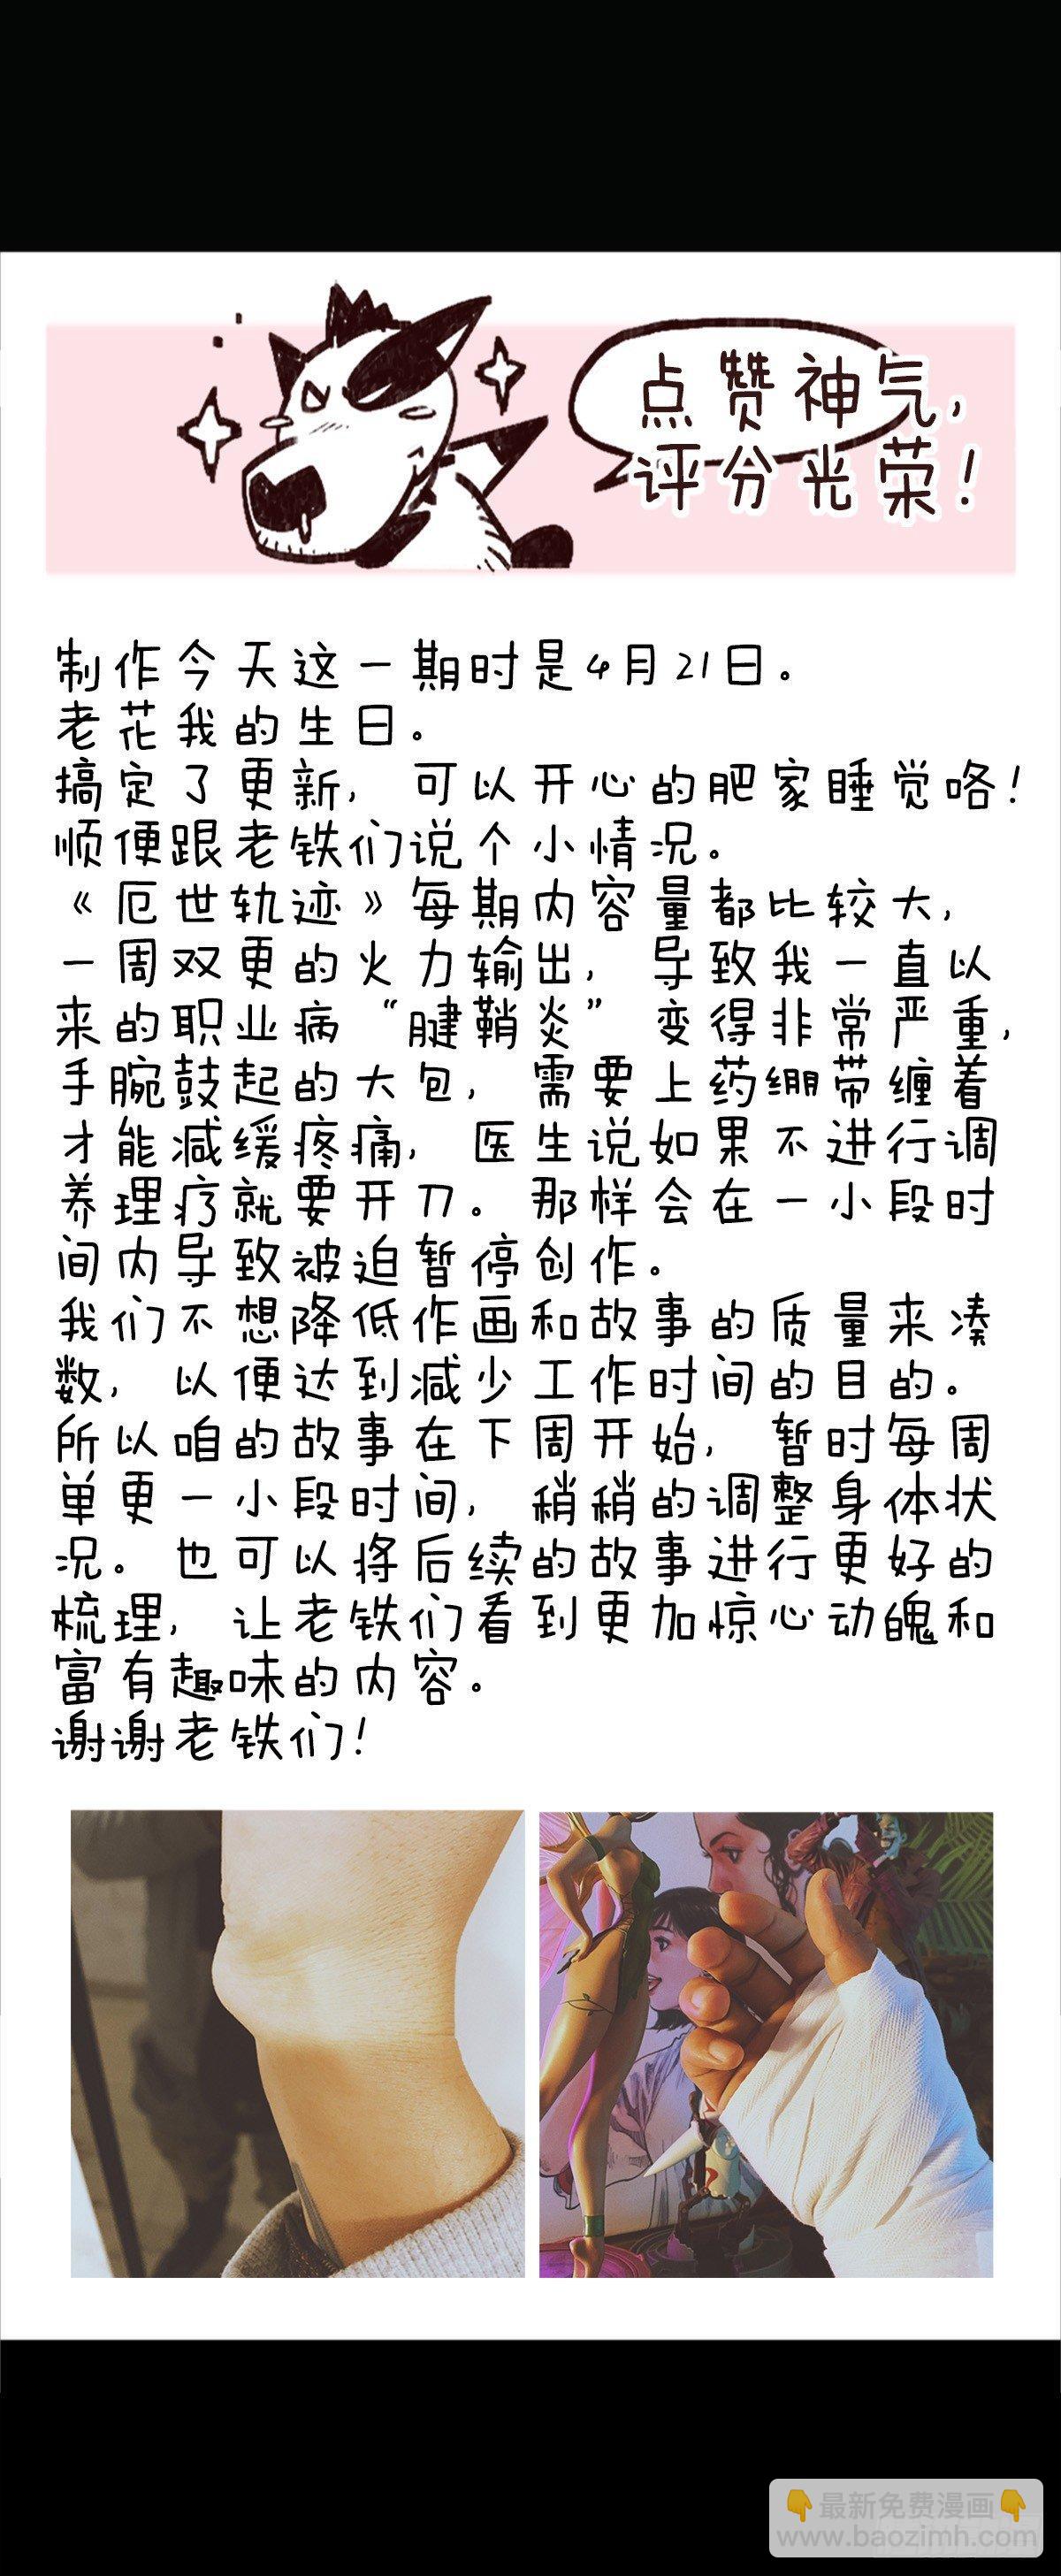 点赞神气,
评分光荣!
制作今天这一期时是4月21日。
老花我的生日。
搞定了更新, 可以开心的肥家睡觉咯!
顺便跟老铁们说个小情况。
《厄世轨迹》每期内容量都比较大,
一周双更的火力输出, 导致我一直以
来的职业病“腱鞘炎”变得非常严重,
手腕鼓起的大包, 需要上药绷带缠着
才能减缓疼痛, 医生说如果不进行调
养理疗就要开刀。那样会在一小段时
间内导致被迫暂停创作。
我们不想降低作画和故事的质量来凑
数, 以便达到减少工作时间的目的。
所以咱的故事在下周开始, 暂时每周
单更一小段时间, 稍稍的调整身体状
况。也可以将后续的故事进行更好的
梳理, 让老铁们看到更加惊心动魄和
富有趣味的内容。
谢谢老铁们!
👇最新免费漫画👇
www.baozimh.com